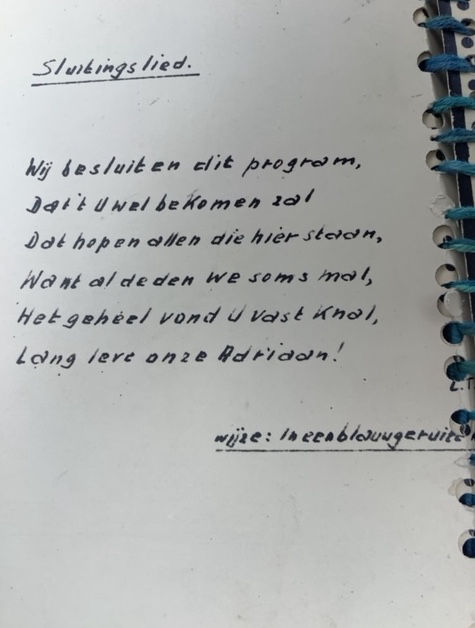 Sluitingslied.
Wij besluiten dit program,
Dat 't U wel bekomen zal
Dat hopen allen die hier staan,
Want al deden we soms mal,
Het geheel vond U vast Knal,
Lang leve onze Adriaan!
wijze: In een blauwgeruite